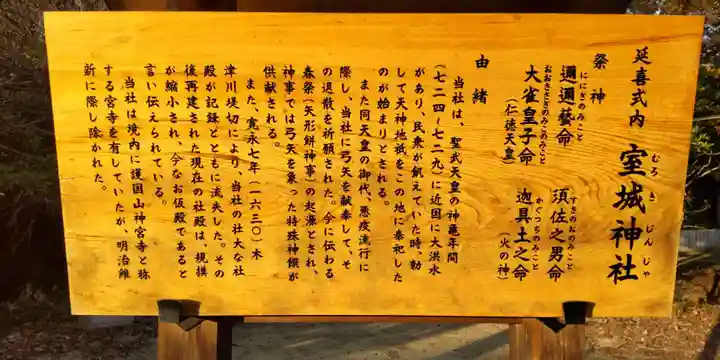 延喜式内 室城神社
むろ き じん じゃ
祭神
邇邇藝命
ににぎのみこと
須佐之男命
すさのおのみこと
大雀皇子命
おおささぎのみこのみこと
(仁徳天皇)
迦具土之命
かぐつちのみこと
(火の神)
由緒
当社は、聖武天皇の神亀年間
(七二四~七二九)に近国に大洪水
があり、民衆が飢えていた時、勅
して天神地祇をこの地に奉祀した
のが始まりとされる。
また同天皇の御代、悪疫流行に
際し、当社に弓矢を献奉して、そ
の退散を祈願された。今に伝わる
春祭(矢形餅神事)の起源とされ、
神事では弓矢を象った特殊神饌が
供献される。
また、寛永七年(一六三〇)木
津川堤切により、当社の壮大な社
殿が記録とともに流失した。その
後再建された現在の社殿は、規模
が縮小され、今なお仮殿であると
言い伝えられている。
当社は境内に護国山神宮寺と称
する宮寺を有していたが、明治維
新に際し除かれた。